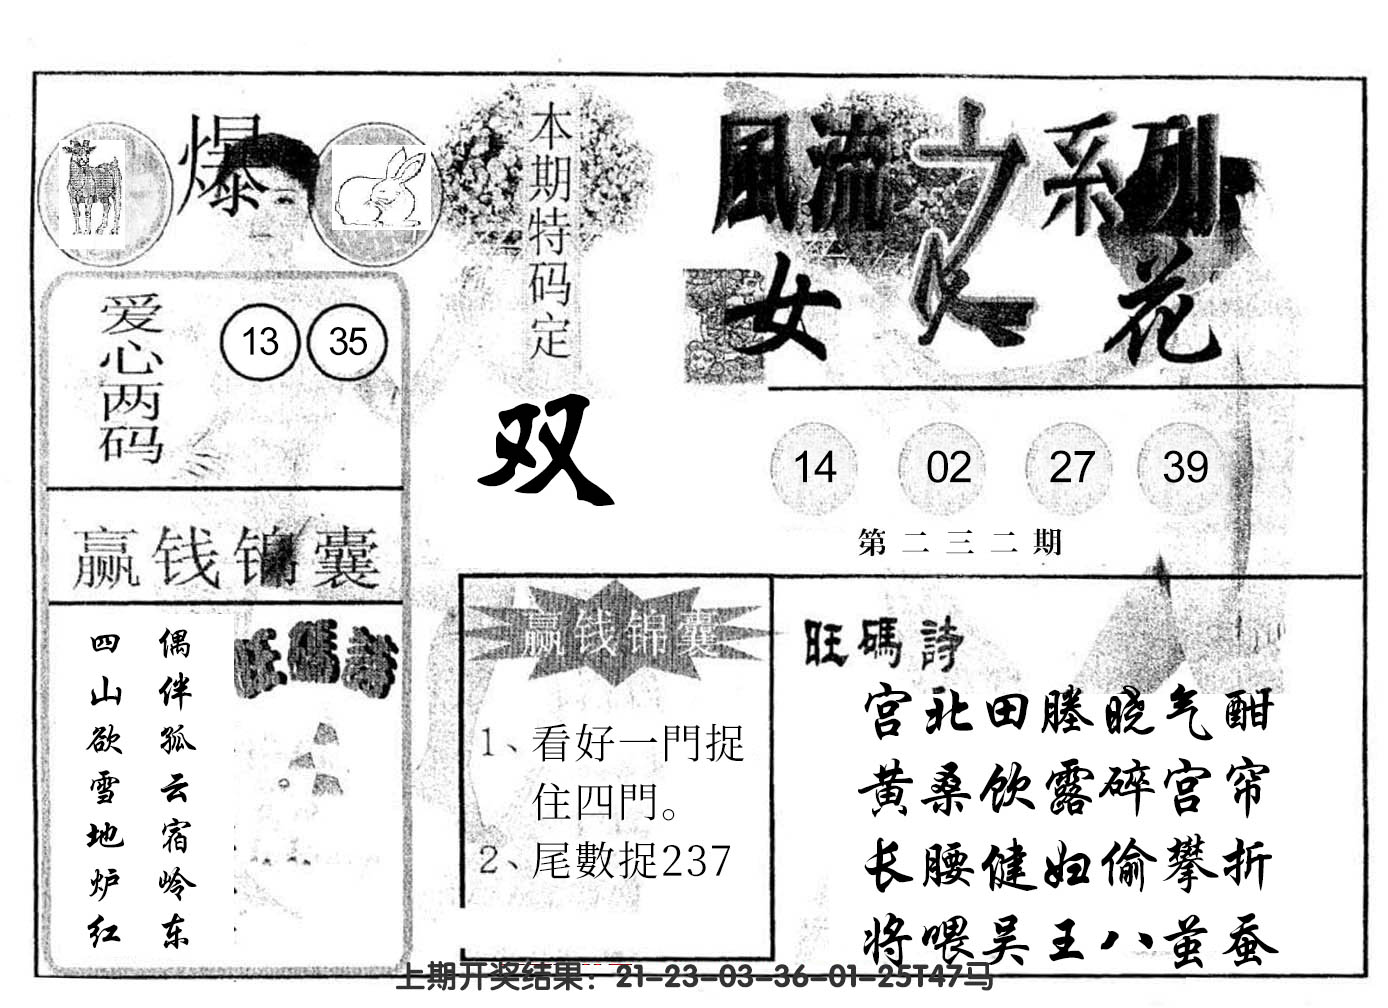 爆
本期特码定
双
風流之系列
女人花
爱心两码
13 35
14 02 27 39
第二三二期
赢钱锦囊
旺碼詩
偶伴孤云宿岭东
四山欲雪地炉红
赢钱锦囊
1、看好一門捉
住四門。
2、尾數捉237
旺碼詩
宫北田塍晓气酣
黄桑饮露碎宫帘
长腰健妇偷攀折
将喂吴王八茧蚕
上期开奖结果：21-23-03-36-01-25T47马